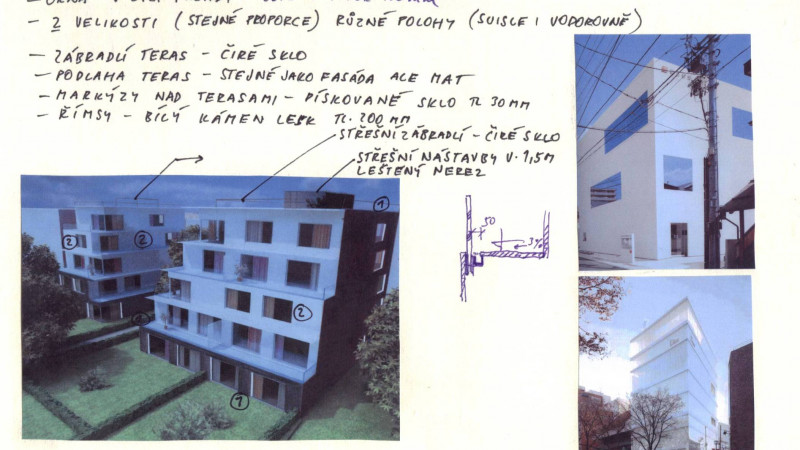 – 2 VELIKOSTI (STEJNÉ PROPORCE) RŮZNÉ POLOHY (SVISLE I VODOROVNĚ)
– ZÁBRADLÍ TERAS – ČIRÉ SKLO
– PODLAHA TERAS – STEJNÉ JAKO FASÁDA ALE MAT
– MARKÝZY NAD TERASAMI – PÍSKOVANÉ SKLO TL 30 MM
– ŘÍMSY – BÍLÝ KÁMEN LESK TL. 200 MM
STŘEŠNÍ ZÁBRADLÍ – ČIRÉ SKLO
STŘEŠNÍ NÁSTAVBY V. 1,5M
LEŠTĚNÝ NEREZ
1
2
2
2
1
50
3%